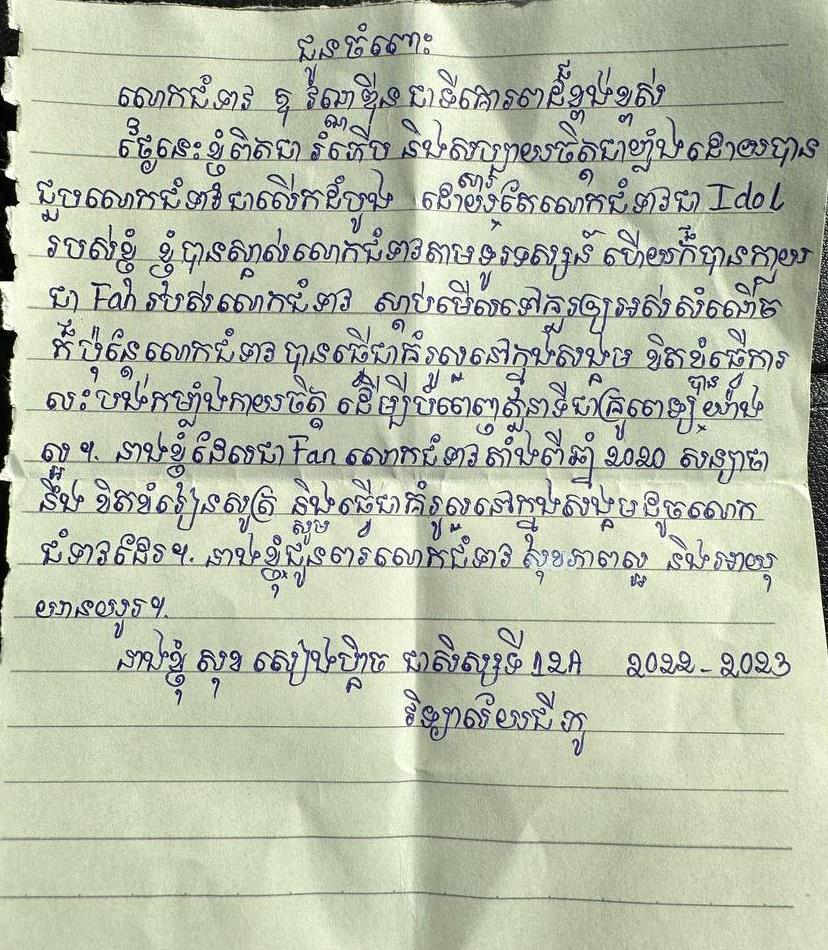 ជូនចំពោះ
លោកជំទាវ ឱ វណ្ណឌីន ជាទីគោរពដ៏ខ្ពង់ខ្ពស់
ថ្ងៃនេះខ្ញុំពិតជា រំភើប និងសប្បាយចិត្តជាខ្លាំងដោយបាន
ជួបលោកជំទាវជាលើកដំបូង ដោយសារតែលោកជំទាវជា Idol
របស់ខ្ញុំ ខ្ញុំបានស្គាល់លោកជំទាវតាមទូរទស្សន៍ ហើយក៏បានក្លាយ
ជា Fan របស់លោកជំទាវ ស្ដាប់មើលទៅគួរឲ្យអស់សំណើច
ក៏ប៉ុន្តែលោកជំទាវ បានធ្វើជាគំរូល្អនៅក្នុងសង្គម ខិតខំធ្វើការ
លះបង់កម្លាំងកាយចិត្ត ដើម្បីបំពេញតួនាទីជាគ្រូពេទ្យបានយ៉ាង
ល្អ។ នាងខ្ញុំដែលជា Fan លោកជំទាវតាំងពីឆ្នាំ 2020 សន្យាថា
នឹង ខិតខំរៀនសូត្រ និងធ្វើជាគំរូល្អនៅក្នុងសង្គមដូចលោក
ជំទាវដែរ។ នាងខ្ញុំសូមជូនពរលោកជំទាវ សុខភាពល្អ និងអាយុ
យឺនយូរ។
នាងខ្ញុំ សុខ សៀងហ្លិច ជាសិស្សទី 12A 2022-2023
វិទ្យាល័យជីភូ